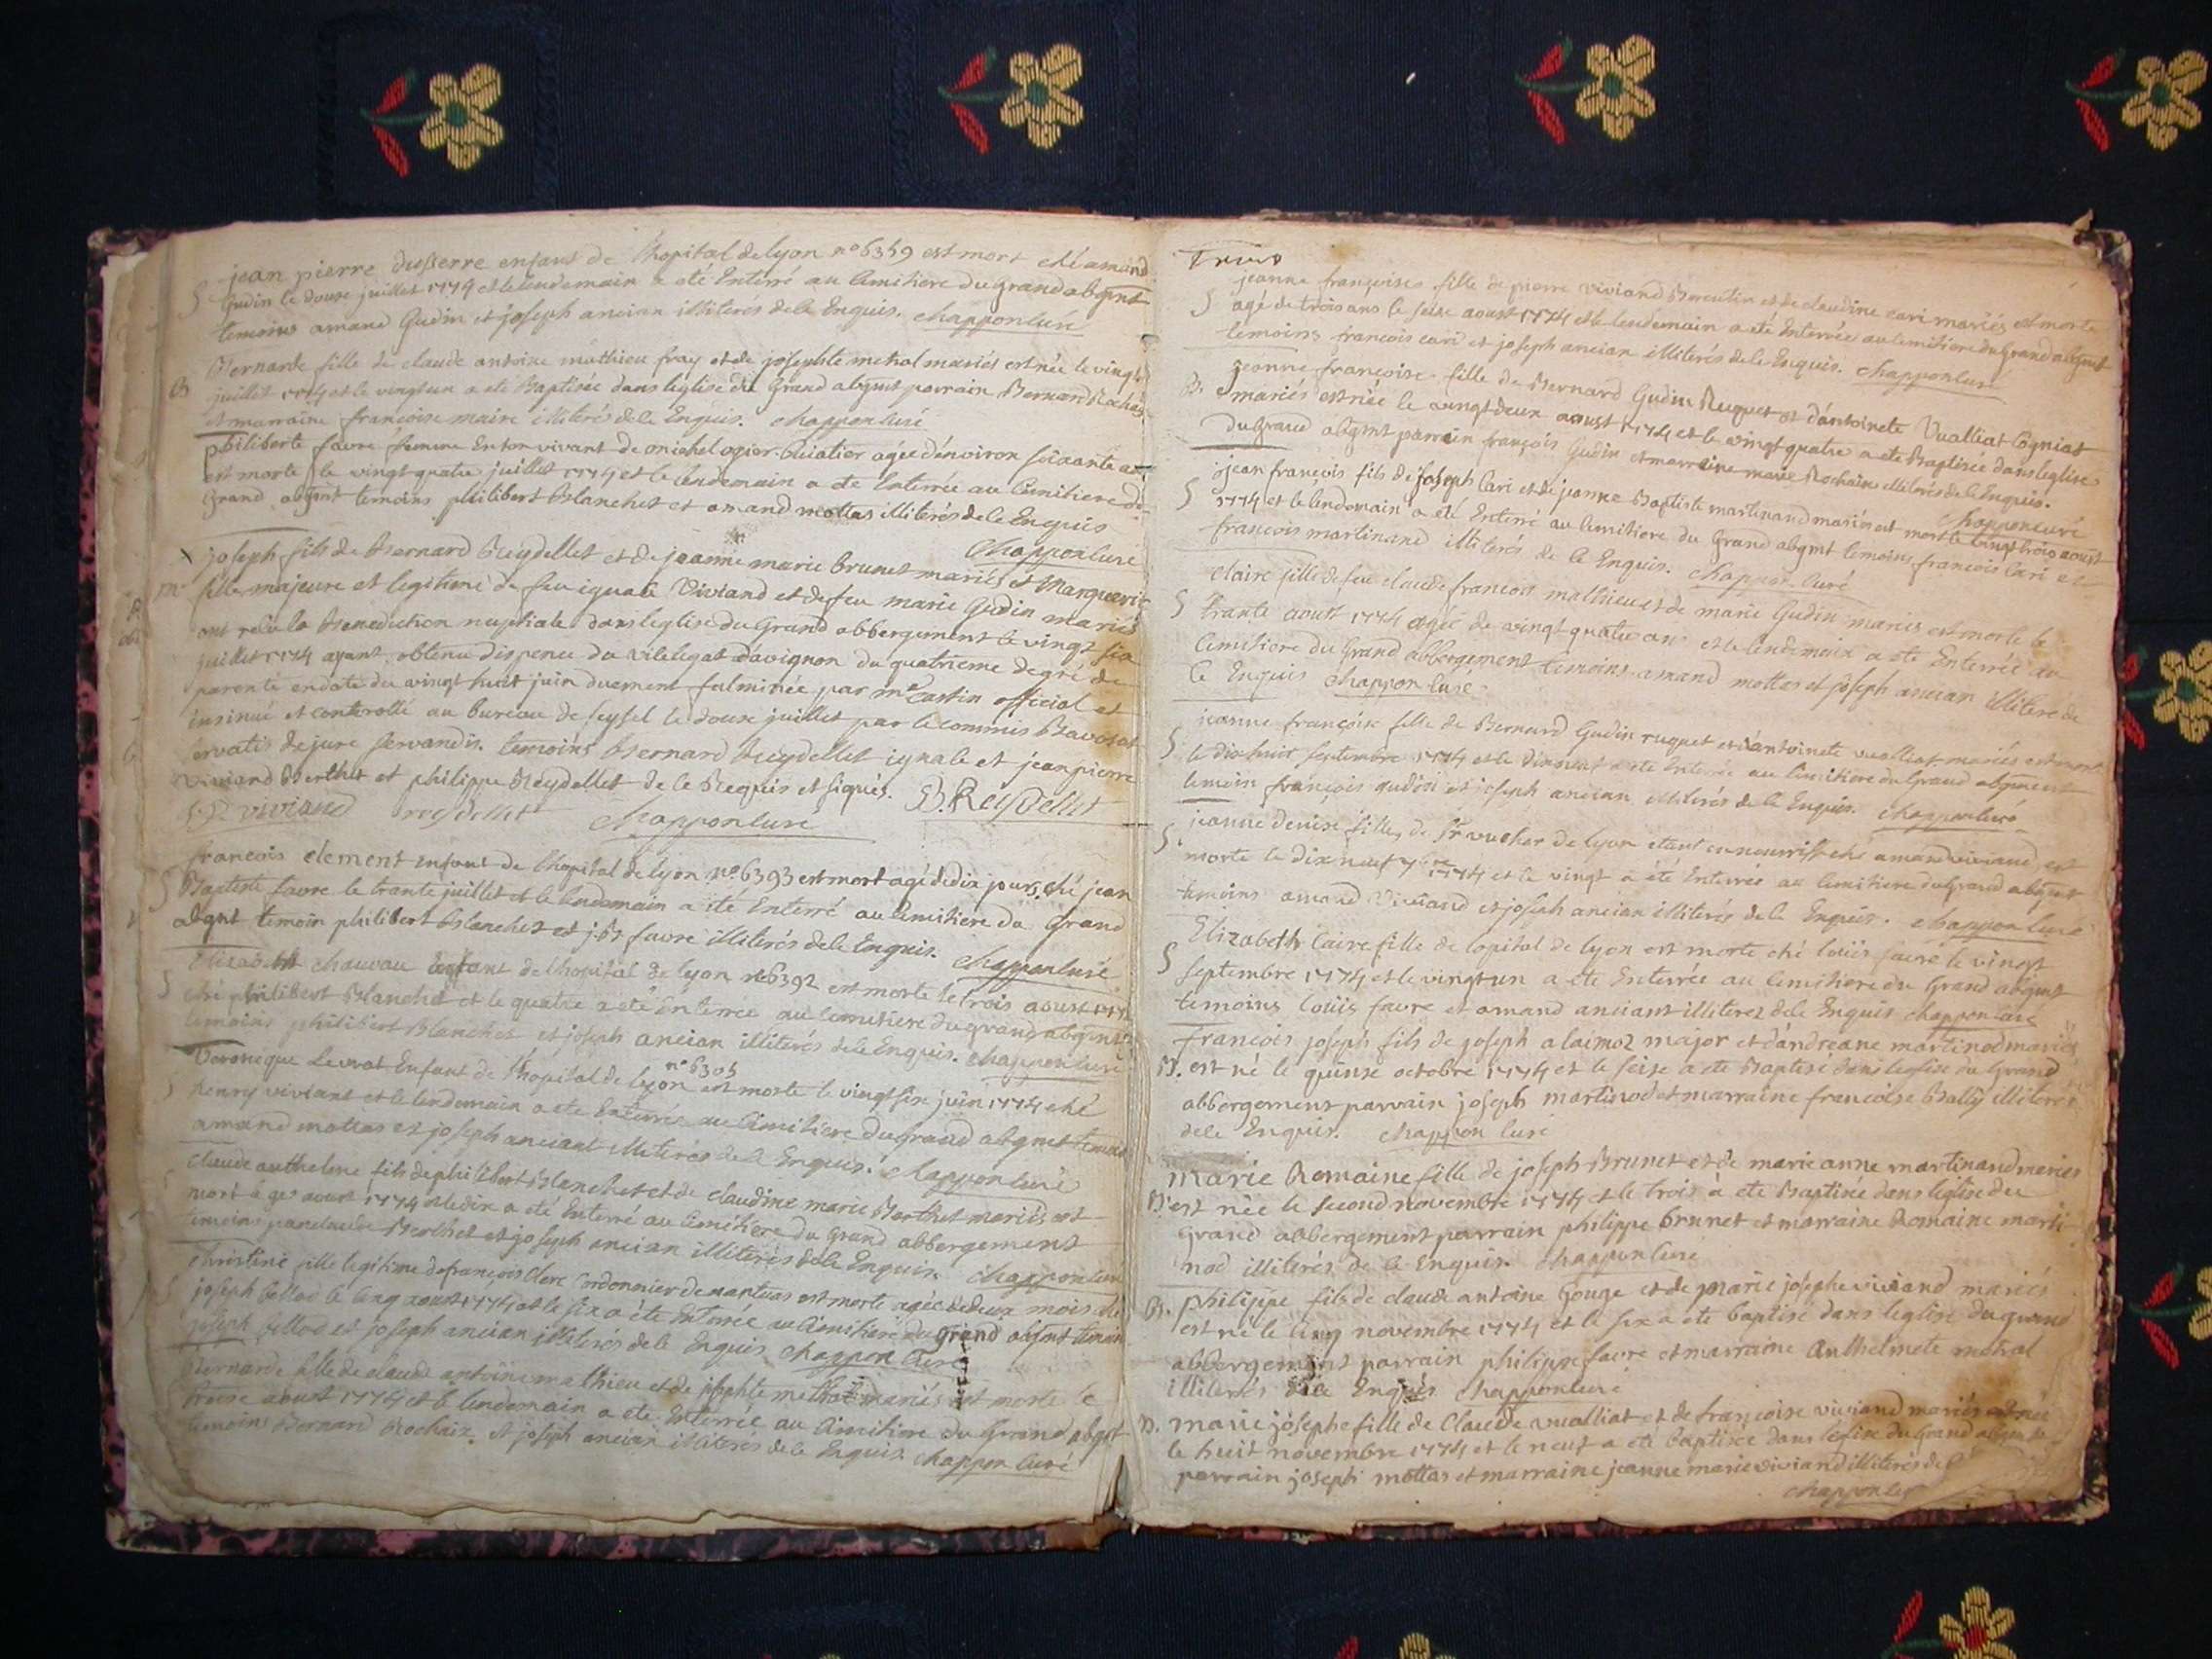 jean pierre dusserre enfant de l'hopital de lyon n° 6359 est mort ché amand
S Gudin le douze juillet 1774 et le lendemain a eté Enterré au Cimitiere du grand abgmt
temoins amand Gudin et joseph ancian illiterés de le Enquis. chappon curé
Bernarde fille de claude antoine mathieu fray et de josephte metral mariés est née le vingt
B juillet 1774 et le vingt un a eté Baptisée dans leglise du Grand abgmt parrain Bernard Rochaix
et marraine francoise maire illiterés de le Enquis. chappon curé
philiberte favre femme En son vivant de michel ogier cuiatier agée d'environ soixante ans
est morte le vingt quatre juillet 1774 et le lendemain a eté Enterrée au Cimitiere du
Grand abgmt temoins philibert Blanchet et amand mottas illiterés de le Enquis
chappon curé
joseph fils de Bernard Reydellet et de jeanne marie brunet mariés et Marguerite
m fille majeure et legitime de feu ignace Viviand et de feu marie Gudin mariés
ont reçu la Benediction nuptiale dans leglise du Grand abbergement le vingt six
juillet 1774 ayant obtenu dispence du vilelegat d'avignon du quatrieme degré de
parenté en date du vingt huit juin duement fulminée par mr castin official et
insinué et controllé au bureau de seysel le douze juillet par le commis Bavosat
servatis de jure servandis. temoins Bernard Reydellet ignace et jean pierre
viviand Berthet et philippe Reydellet de le Requis et signés. B. Reydellet
viviand reydellet chappon curé
francois clement enfant de l'hopital de lyon n° 6393 est mort agé de dix jours ché jean
S Baptiste favre le trante juillet et le lendemain a eté Enterré au Cimitiere du Grand
abgmt temoin philibert Blanchet et j Bt favre illiterés de le Enquis. chappon curé
Elizabeth chauvau enfant de l'hopital de lyon n° 6392 est morte le trois aoust 1774
S ché philibert Blanchet et le quatre a eté Enterrée au Cimitiere du grand abgmt
temoins philibert Blanchet et joseph ancian illiterés de le Enquis. chappon curé
n° 6305
Veronique Levrat Enfant de l'hopital de lyon est morte le vingt six juin 1774 ché
S henry viviant et le lendemain a eté Enterrée au Cimitiere du Grand abgmt temoins
amand mottas et joseph anciant illiterés de le Enquis. chappon curé
claude anthelme fils de philibert Blanchet et de claudine marie Berthet mariés est
mort aoust 1774 et le dix a eté Enterré au Cimitiere du Grand abbergement
temoins Berthet et joseph ancian illiterés de le Enquis. chappon curé
christine fille legitime de françois Clerc Cordonnier de nantuas est morte agée de deux mois ché
S joseph bellod le cinq aoust 1774 et le six a eté Enterrée au Cimitiere du Grand abgmt temoin
joseph bellod et joseph ancian illiterés de le Enquis chappon curé
Bernarde fille de claude antoine mathieu et de josephte methral mariés est morte le
treize aoust 1774 et le lendemain a eté Enterrée au Cimitiere du Grand abgmt
temoins Bernard Rochaix et joseph ancian illiterés de le Enquis chappon curé
jeanne françoise fille de pierre viviand Barentin et de claudine cari mariés est morte
S agé de trois ans le seize aoust 1774 et le lendemain a eté Enterrée au Cimitiere du Grand abgmt
temoins francois cari et joseph ancian illiterés de le Enquis. chappon curé
jeanne francoise fille de Bernard Gudin Ruquet et d'antoinete Vualliat Cogniat
B. mariés est née le vingt deux aoust 1774 et le vingt quatre a eté Baptisée dans leglise
Du Grand abgmt parrein françois Gudin et marraine marie Rochaix illiterés de le Enquis.
chappon curé
jean françois fils de joseph Cari et de jeanne Baptiste martinand mariés est mort le vingt trois aoust
S 1774 et le lendemain a eté Enterré au Cimitiere du Grand abgmt temoins francois Cari et
francois martinand illiterés de le Enquis. chappon curé
Claire fille de feu claude francois mathieu et de marie Gudin mariés est morte le
S trante aoust 1774 agée de vingt quatre ans et le lendemain a eté Enterrée au
Cimitiere du Grand abbergement temoins amand mottas et joseph ancian illiteré de
le Enquis chappon curé
jeanne françoise fille de Bernard Gudin ruquet et d'antoinete vualliat mariés est morte
S le dix huit septembre 1774 et le dixneuf a eté Enterrée au Cimitiere du Grand abgment
temoin françois gudin et joseph ancian illiterés de le Enquis. chappon curé
jeanne denise fille de Sr vucher de lyon etant en nourriss ché amand viviand est
S morte le dix neuf 7bre 1774 et le vingt a eté Enterrée au Cimitiere du Grand abgmt
temoins amand Viviand et joseph ancian illiterés de le Enquis. chappon curé
Elizabeth Caire fille de lopital de lyon est morte ché loüis favre le vingt
S septembre 1774 et le vingt un a eté Enterrée au Cimitiere du Grand abgmt
temoins loüis favre et amand anciant illiterez de le Enquis chappon curé
francois joseph fils de joseph alaimoz major et d'andreane martinod mariés
B. est né le quinze octobre 1774 et le seize a eté Baptisé dans leglise du Grand
abbergement parrain joseph martinod et marraine francoise Bally illiterés
de le Enquis. chappon curé
marie Romaine fille de joseph Brunet et de marie anne martinand mariés
B. est née le second novembre 1774 et le trois a eté Baptisée dans leglise du
Grand abbergement parrain philippe brunet et marraine Romaine marti-
nod illiterés de le Enquis. chappon curé
philippe fils de claude antoine Gouge et de marie josephe viviand mariés
B. est né le cinq novembre 1774 et le six a eté baptisé dans leglise du grand
abbergement parrain philippe favre et marraine Anthelmete metral
illiterés de le Enquis chappon curé
B. marie josephe fille de Claude vualliat et de françoise viviand mariés est née
le huit novembre 1774 et le neuf a eté baptisée dans leglise du Grand abgmt
parrain joseph mottas et marraine jeanne marie viviand illiterés de
chappon